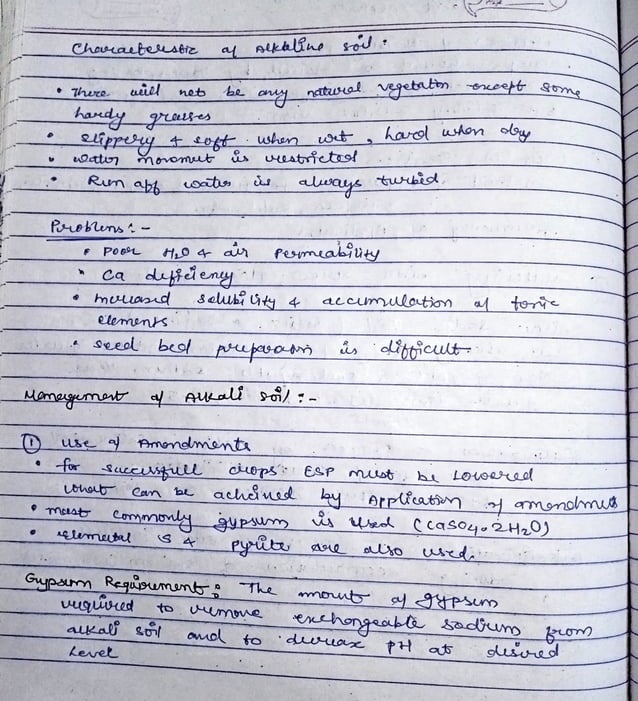 Characteristic of Alkaline soil :
• There will not be any natural vegetation except some
hardy grasses
• slippery & soft when wet, hard when dry
• water movment is restricted
• Run off water is always turbid
Problems :-
• Poor H₂O & air permeability
• Ca deficiency
• Increased solubility & accumulation of toxic
elements
• seed bed preparation is difficult
Management of Alkali soil :-
① Use of Amendments
• for successfull crops ESP must be Lowered
what can be acheived by Application of amendments
• most commonly gypsum is used (CaSO4.2H2O)
• elemental S & pyrite are also used.
Gypsum Requirement : The amount of gypsum
required to remove exchangeable sodium from
alkali soil and to decrease PH at desired
Level